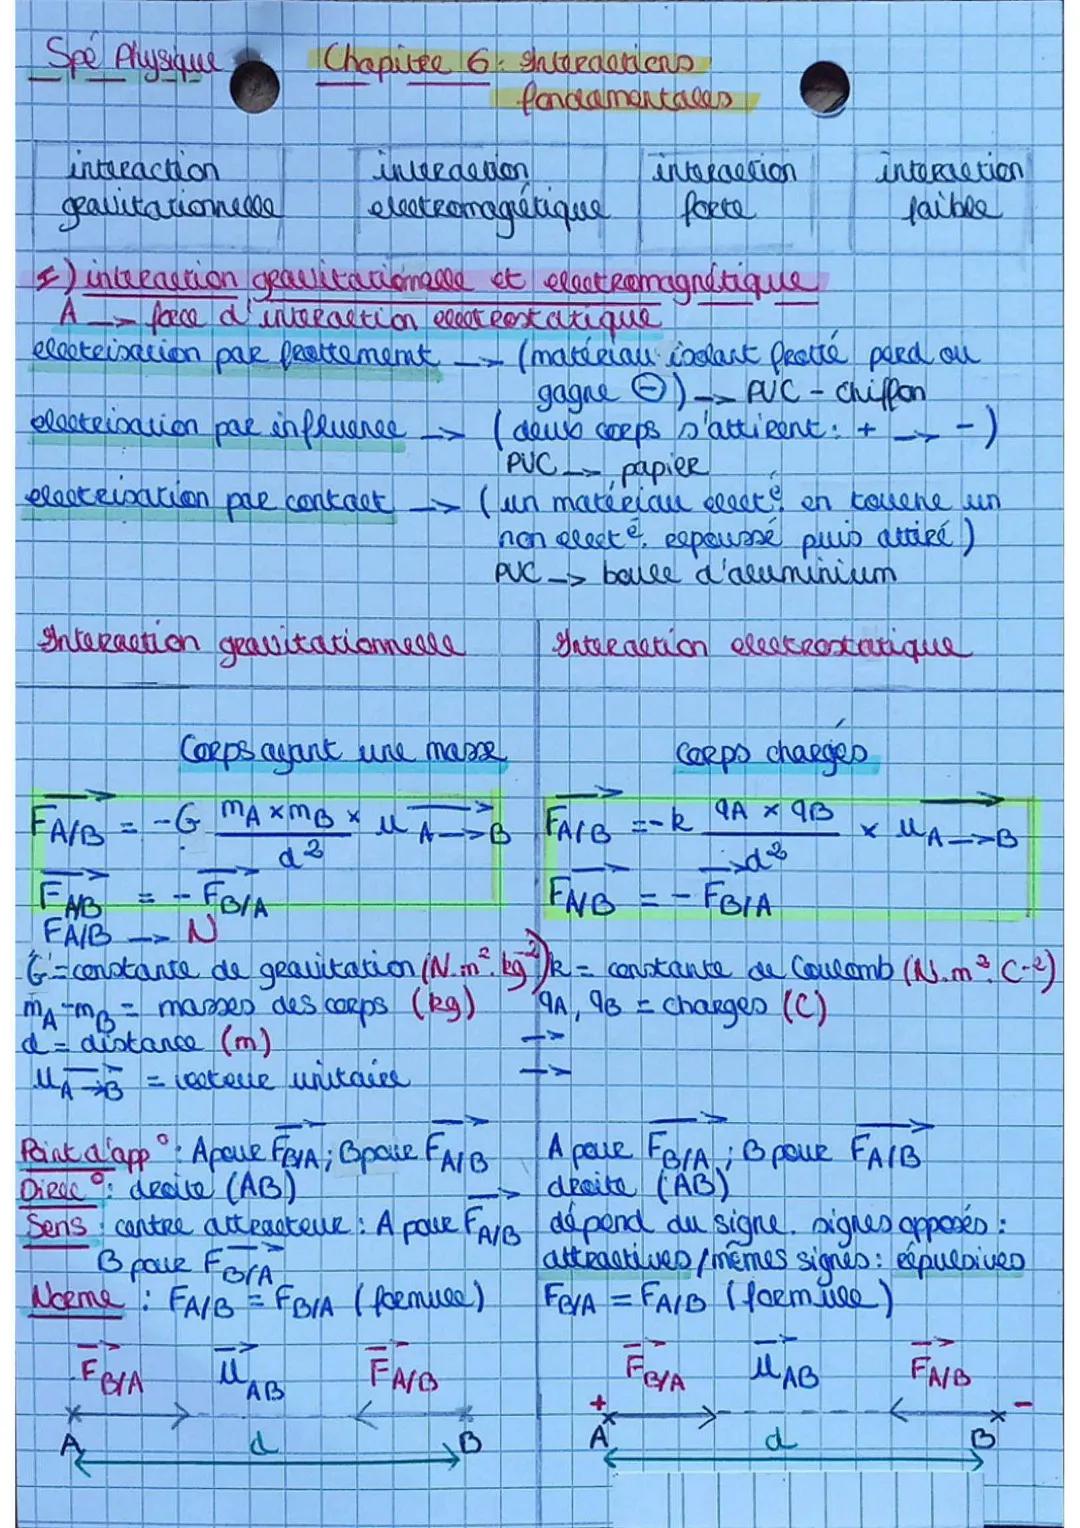 Spé Physique
Chapitre 6 : Interactions
fondamentales
interaction gravitationnelle
interaction electromagétique
interaction forte
interaction faible
I) interaction gravitationnelle et electromagnétique
A → force d'interaction electrostatique
electrisation par frottement → (matériau isolant frotté perd ou
gagne ⊖) → PVC - chiffon
electrisation par influence → (deux corps s'attirent : + → -)
PVC → papier
electrisation par contact → (un matériau electé en touche un
non electé. repoussé puis attiré)
PVC → boule d'aluminium
Interaction gravitationnelle
Corps ayant une masse
F⃗A/B = -G (mA × mB)/d² × u⃗A→B
F⃗A/B = - F⃗B/A
FA/B → N
G = constante de gravitation (N.m².kg⁻²)
mA - mB = masses des corps (kg)
d = distance (m)
u⃗A→B = vecteur unitaire
Point d'app° : A pour F⃗B/A ; B pour F⃗A/B
Direc° : droite (AB)
Sens : centre attracteur : A pour F⃗A/B
B pour F⃗B/A
Norme : FA/B = FB/A (formule)
F⃗B/A u⃗AB F⃗A/B
A d B
Interaction electrostatique
corps chargés
F⃗A/B = -k (qA × qB)/d² × u⃗A→B
F⃗A/B = - F⃗B/A
k = constante de Coulomb (N.m².C-2)
qA, qB = charges (C)
→
→
A pour F⃗B/A ; B pour F⃗A/B
droite (AB)
dépend du signe. signes opposés :
attractives / mêmes signes : répulsives
FB/A = FA/B (formule)
F⃗B/A u⃗AB F⃗A/B
+ -
A d B